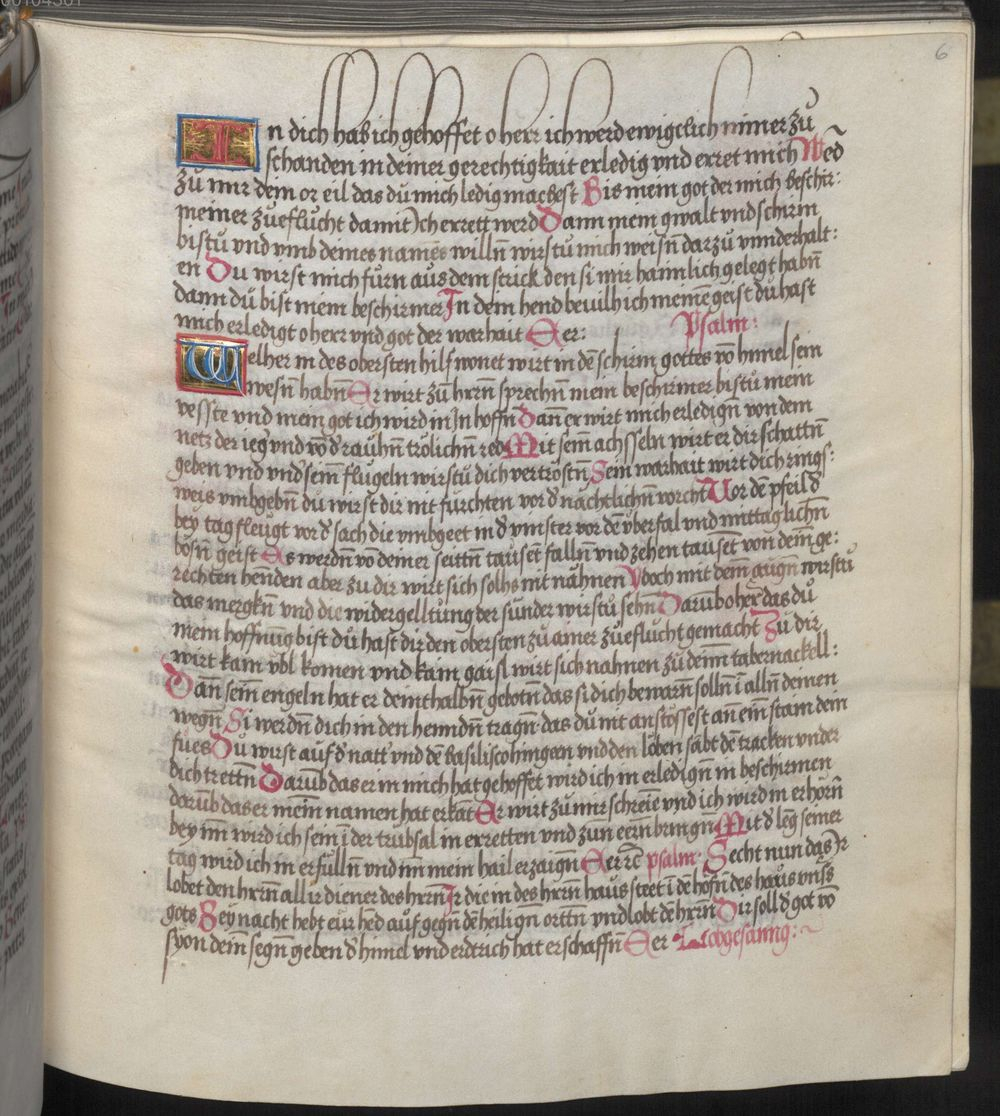 6
In dich hab ich gehoffet o herr ich werd ewigclich nimer zů
schanden in deiner gerechtigkait erledig vnd erret mich Wed
zů mir dem or eil das du mich ledig machest Bis mein got der mich beschir:
meiner zůeflucht damit Ich errett werd Dann mein gwalt vnd schirm
bistu vnd vmb deines names willn wirstu mich weisn darzů vnnderhalt:
en Du wirst mich fůrn aus dem strick den si mir haimlich gelegt habn̄
dann dů bist mein beschirmer In dem hend beuilh ich meinē geist dů hast
mich erledigt o herr vnd got der warhait Eer: Psalm:
Welher in des obersten hilf wonet wirt in dē schirm gottes vō himel sein
wesn̄ habn̄ Er wirt zů hrrn̄ sprechn̄ mein beschirmer bistu mein
vesste vnd mein got ich wird in In hoffn̄ Dañ er wirt mich erledign̄ von dem
netz der ieg vnd vō d rauhn̄ trölichn̄ red Mit sein̄ achsseln wirt er dir schattn̄
geben vnd vnd sein̄ flůgeln wirstu dich vertröstn̄ Sein warhait wirt dich rings:
weis vmbgebn̄ du wirst dir nit fůrchten vor d nächtlichn̄ vorcht Vor dē pfeil d
bey tag fleugt vor d sach die vmbgeet in d vinster vor dē vberfal vnd mittäglichn̄
bösn̄ geist Es werdn̄ vō deiner seittn̄ tausēt falln̄ vnd zehen tausēt von dein̄ ge:
rechten hennden aber zu dir wirt sich solhs nit nähnen Ydoch mit dein̄ augn̄ wirstu
das mergkn̄ vnd die widergelltung der sůnder wirstu sehn̄ Darūb o her das du
mein hoffnūg bist dů hast dir den obersten zů ainer zůeflucht gemacht Zu dir
wirt kain vbl komen vnd kain gaisl wirt sich nahnen zů dein̄ tabernackell:
Dañ sein̄ engeln hat er deinthalbn̄ gebotn̄ das si dich bewarn̄ solln̄ ī alln̄ deinen
wegn̄ Si werdn̄ dich in den henndn̄ tragn̄ das dů nit anstossest an ein̄ stain dein
fues Du wirst auf d natt vnd dē basilisco hingeen vnd den löben sābt dē tracken vnder
dich trettn̄ Darūb das er in mich hat gehoffet wird ich in erledign̄ in beschirmen
darūb das er mein̄ namen hat erkāt Er wirt zů mir schreie vnd ich wird in erhörn̄
bey im̄ wird ich sein ī der trůbsal in erretten vnd zůn eern̄ bringn̄ Mit d leng seiner
tag wird ich in erfůlln̄ vnd im̄ mein hail erzaign̄ Eer rc̄ psalm: Secht nun das Ir
lobet den hrrn̄ all ir diener des hrrn̄ Ir die in des hrrn̄ haus steet ī dē höfn̄ des haus vnss
gots Bey nacht hebt eur hēd auf gegn̄ dē heilign̄ orttn̄ vnd lobt dē hrrn̄ Dir soll d got vō
syon dein̄ segn̄ geben d himel vnd erdtrich hat erschaffn̄ Eer Lobgesanng: